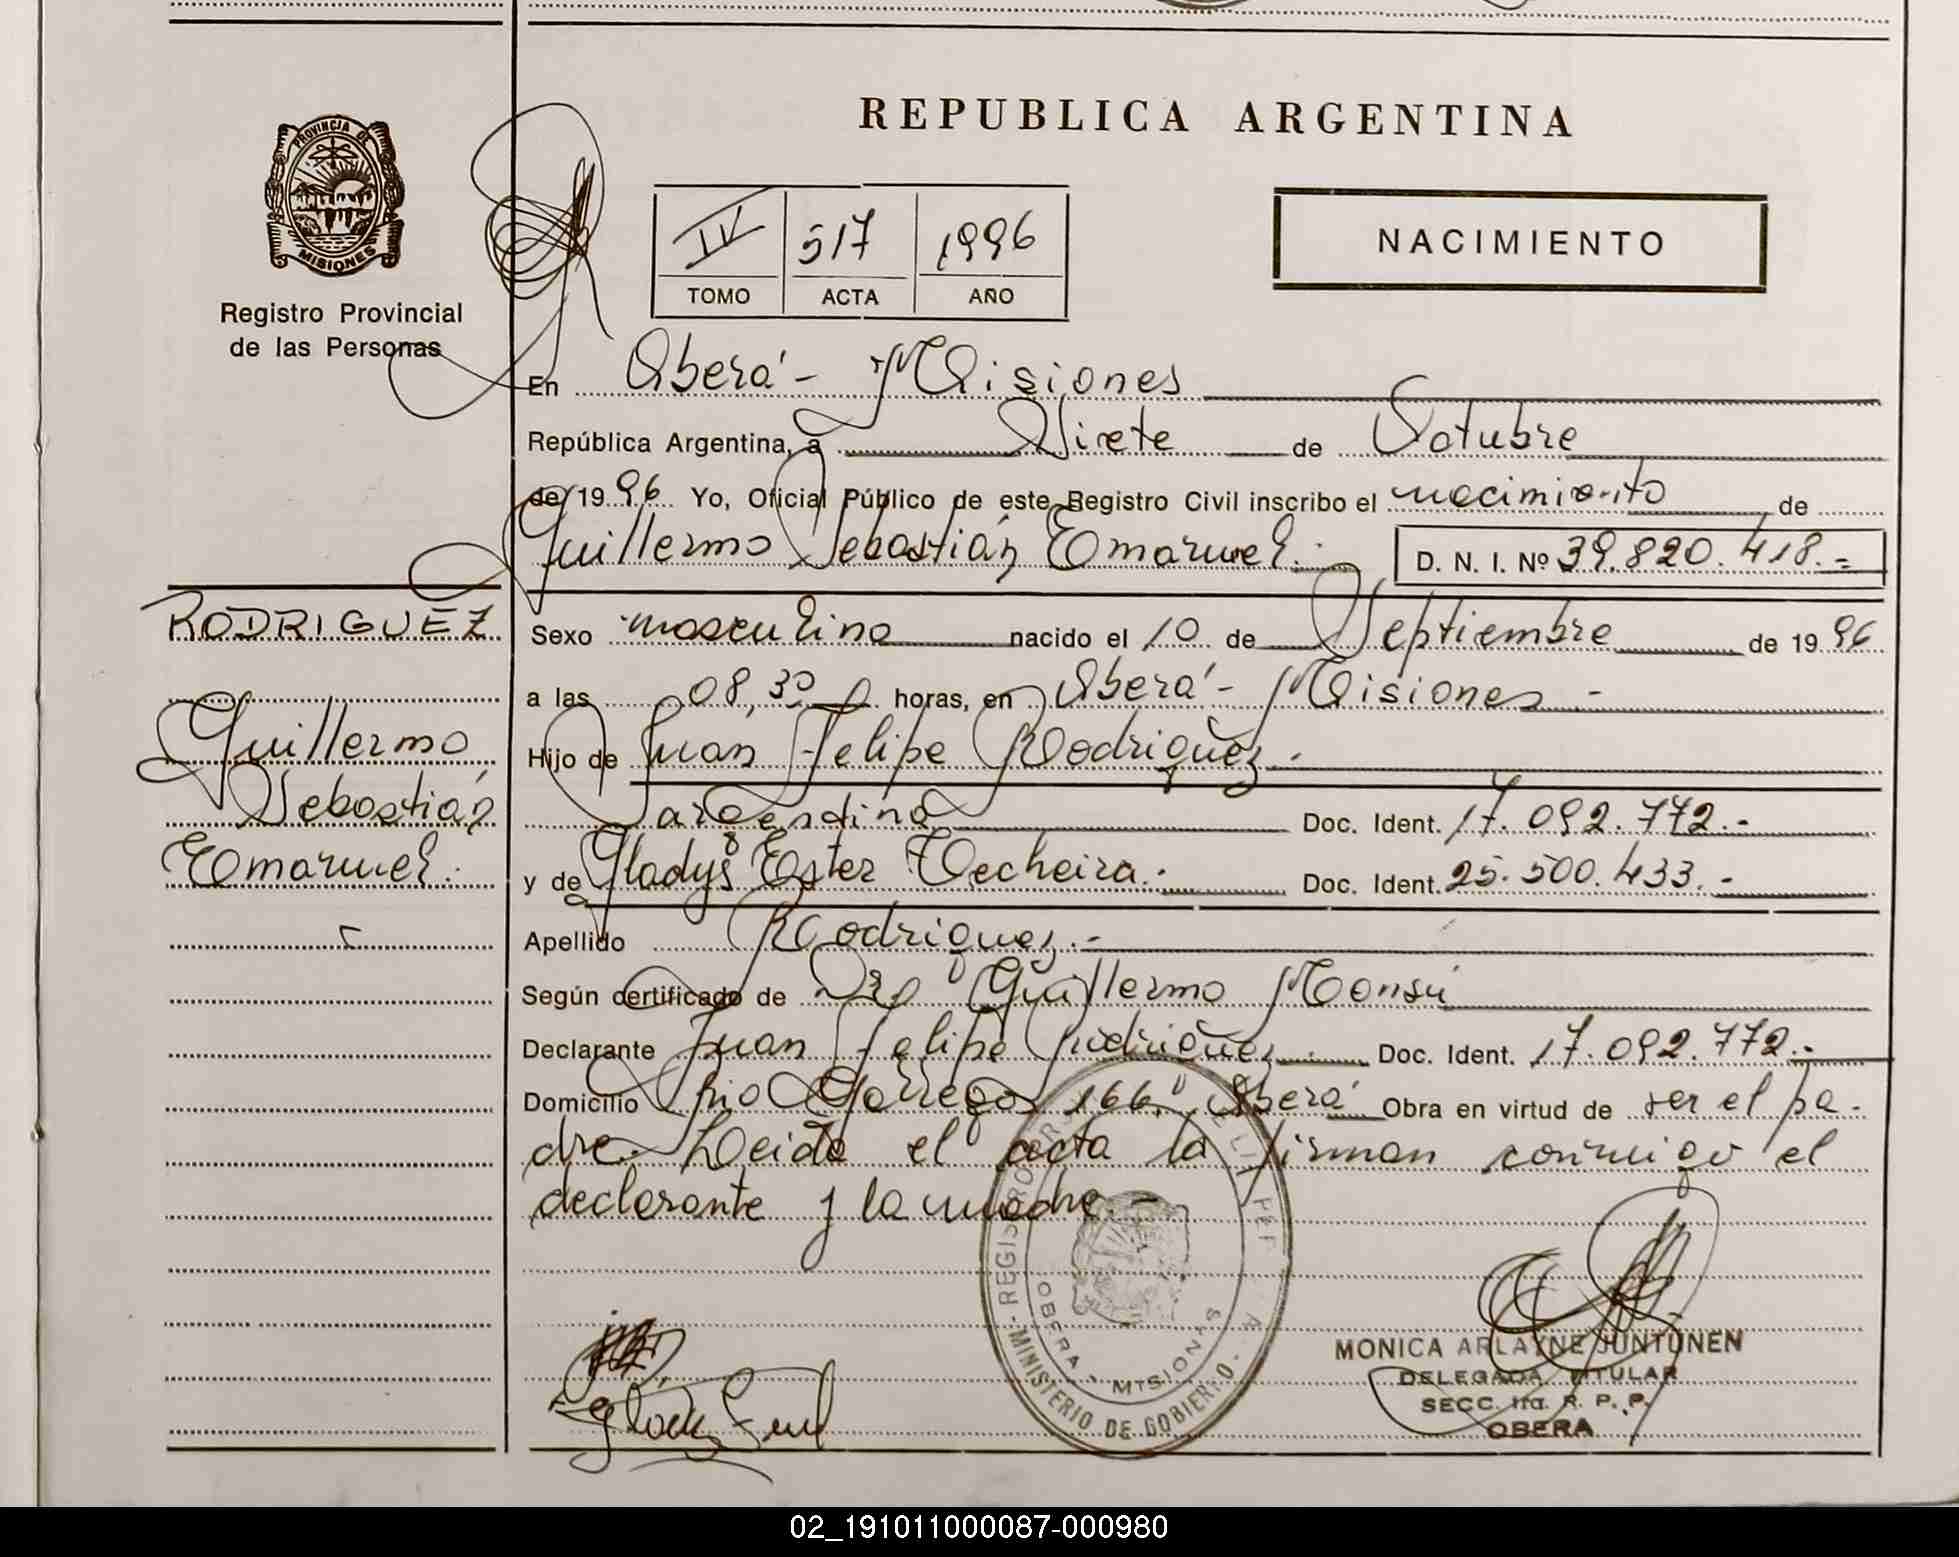 REPUBLICA ARGENTINA
PROVINCIA DE
MISIONES
Registro Provincial
de las Personas
IV 517 1996
TOMO ACTA AÑO
NACIMIENTO
En Oberá - Misiones
República Argentina, a Siete de Octubre
de 1996 Yo, Oficial Público de este Registro Civil inscribo el nacimiento de
Guillermo Sebastián Emanuel.- D. N. I. Nº 39.820.418.=
RODRIGUEZ
Guillermo
Sebastián
Emanuel.-
Sexo masculino nacido el 10 de Septiembre de 1996
a las 08,30 horas, en Oberá - Misiones -
Hijo de Juan Felipe Rodriguez.-
argentino Doc. Ident. 17.092.772.-
y de Gladys Ester Techeira.- Doc. Ident. 25.500.433.-
Apellido Rodriguez.-
Según certificado de Dro Guillermo Monsú
Declarante Juan Felipe Rodriguez.- Doc. Ident. 17.092.772.-
Domicilio Rio Gallegos 166, Oberá Obra en virtud de ser el pa-
dre. Leida el acta la firman conmigo el
declarante y la madre.-
MINISTERIO DE GOBIERNO.
OBERA - MISIONES
MONICA ARLAYNE JUNTUNEN
DELEGADA TITULAR
SECC. 1ra. R. P. P.
OBERA
02_191011000087-000980